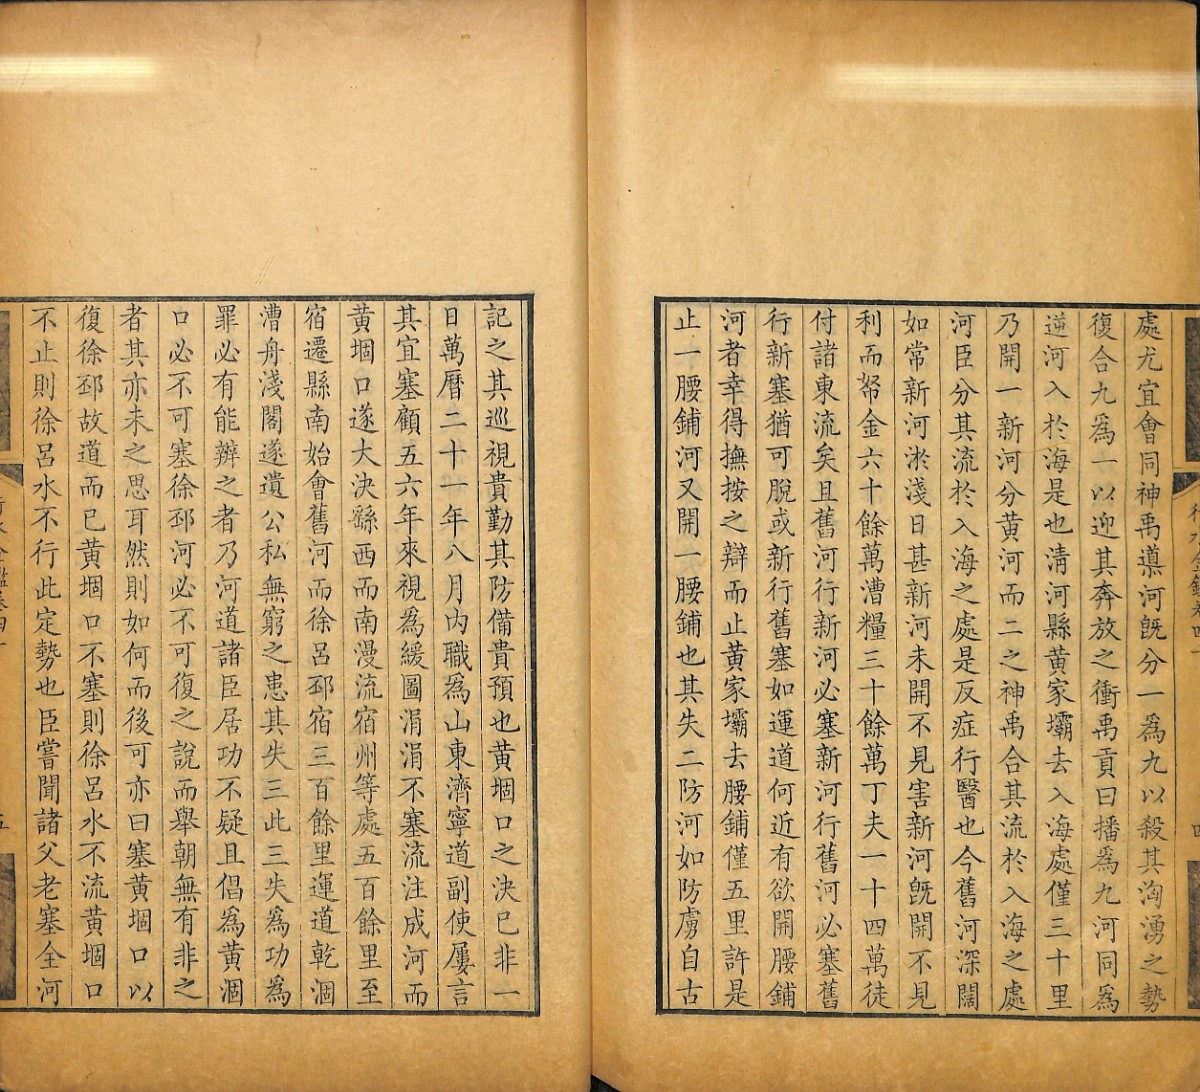 處尤宜會同神禹導河旣分一爲九以殺其洶湧之勢
復合九爲一以迎其奔放之衝禹貢曰播爲九河同爲
逆河入於海是也淸河縣黄家壩去入海處僅三十里
乃開一新河分黄河而二之神禹合其流於入海之處
河臣分其流於入海之處是反症行醫也今舊河深闊
如常新河淤淺日甚新河未開不見害新河旣開不見
利而帑金六十餘萬漕糧三十餘萬丁夫一十四萬徒
付諸東流矣且舊河行新河必塞新河行舊河必塞舊
行新塞猶可脫或新行舊塞如運道何近有欲開腰鋪
河者幸得撫按之辯而止黄家壩去腰鋪僅五里許是
止一腰鋪河又開一腰鋪也其失二防河如防虜自古
記之其巡視貴勤其防備貴預也黄堌口之決已非一
日萬曆二十一年八月内職爲山東濟寧道副使屢言
其宜塞顧五六年來視爲緩圖涓涓不塞流注成河而
黄堌口遂大決繇西而南漫流宿州等處五百餘里至
宿遷縣南始會舊河而徐呂邳宿三百餘里運道乾涸
漕舟淺閣遂遺公私無窮之患其失三此三失爲功爲
罪必有能辨之者乃河道諸臣居功不疑且倡爲黄涸
口必不可塞徐邳河必不可復之說而舉朝無有非之
者其亦未之思耳然則如何而後可亦曰塞黄堌口以
復徐邳故道而已黄堌口不塞則徐呂水不流黄堌口
不止則徐呂水不行此定勢也臣嘗聞諸父老塞全河